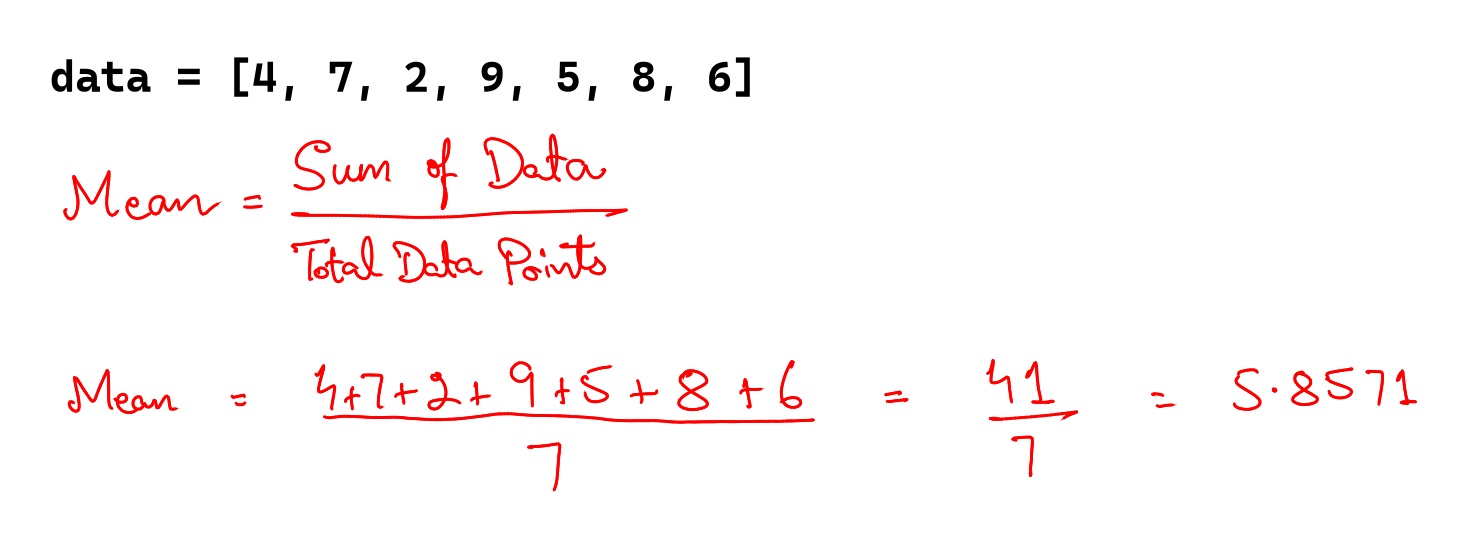 data = [4, 7, 2, 9, 5, 8, 6]
Mean = Sum of Data / Total Data Points
Mean = 4+7+2+9+5+8+6 / 7 = 41 / 7 = 5.8571